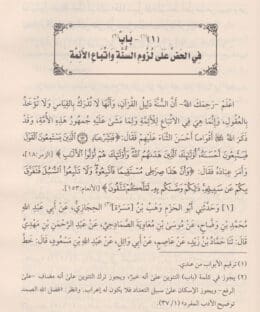 (١) - بَابٌ
في الحَضِّ عَلَى لُزُومِ السُّنَّةِ وَاتِّبَاعِ الأَئِمَّةِ
اعْلَمْ -رَحِمَكَ اللهُ- أَنَّ السُّنَّةَ دَلِيلُ القُرْآنِ، وَأَنَّهَا لَا تُدْرَكُ بِالقِيَاسِ وَلَا تُؤْخَذُ
بِالعُقُولِ، وَإِنَّمَا هِيَ فِي الاتِّبَاعِ لِلأَئِمَّةِ وَلِمَا مَشَى عَلَيْهِ جُمْهُورُ هَذِهِ الأُمَّةِ، وَقَدْ
ذَكَرَ اللهُ أَقْوَامًا أَحْسَنَ الثَّنَاءَ عَلَيْهِمْ فَقَالَ: ﴿فَبَشِّرْ عِبَادِ الَّذِينَ يَسْتَمِعُونَ الْقَوْلَ
فَيَتَّبِعُونَ أَحْسَنَهُ أُولَئِكَ الَّذِينَ هَدَاهُمُ اللهُ وَأُولَئِكَ هُمْ أُولُو الْأَلْبَابِ﴾ [الزمر:١٨]،
وَأَمَرَ عِبَادَهُ فَقَالَ: ﴿وَأَنَّ هَذَا صِرَاطِي مُسْتَقِيمًا فَاتَّبِعُوهُ وَلَا تَتَّبِعُوا السُّبُلَ فَتَفَرَّقَ
بِكُمْ عَنْ سَبِيلِهِ ذَلِكُمْ وَصَّاكُمْ بِهِ لَعَلَّكُمْ تَتَّقُونَ﴾ [الأنعام:١٥٣].
[١] وَحَدَّثَنِي أَبُو الحَزْمِ وَهْبُ بْنُ [مَسَرَّةَ] الحِجَارِيُّ، عَنْ أَبِي عَبْدِ اللهِ
مُحَمَّدِ بْنِ وَضَّاحٍ، عَنْ مُوسَى بْنِ مُعَاوِيَةَ الصُّمَادِحِيِّ، عَنْ عَبْدِ الرَّحْمَنِ بْنِ مَهْدِيٍّ
قَالَ: ثَنَا حَمَّادُ بْنُ زَيْدٍ، عَنْ عَاصِمٍ، عَنْ أَبِي وَائِلٍ، عَنْ عَبْدِ اللهِ بْنِ مَسْعُودٍ، قَالَ: خَطَّ
(١) ترقيم الأبواب من عندي.
(٢) يجوز في كلمة (باب) التنوين على أنه خبر، ويجوز ترك التنوين على أنه مضاف -على
الرفع- ويجوز الإسكان على سبيل التعداد فلا يكون له إعراب. وانظر: «فضل الله الصمد
توضيح الأدب المفرد» (١/ ٣٧).